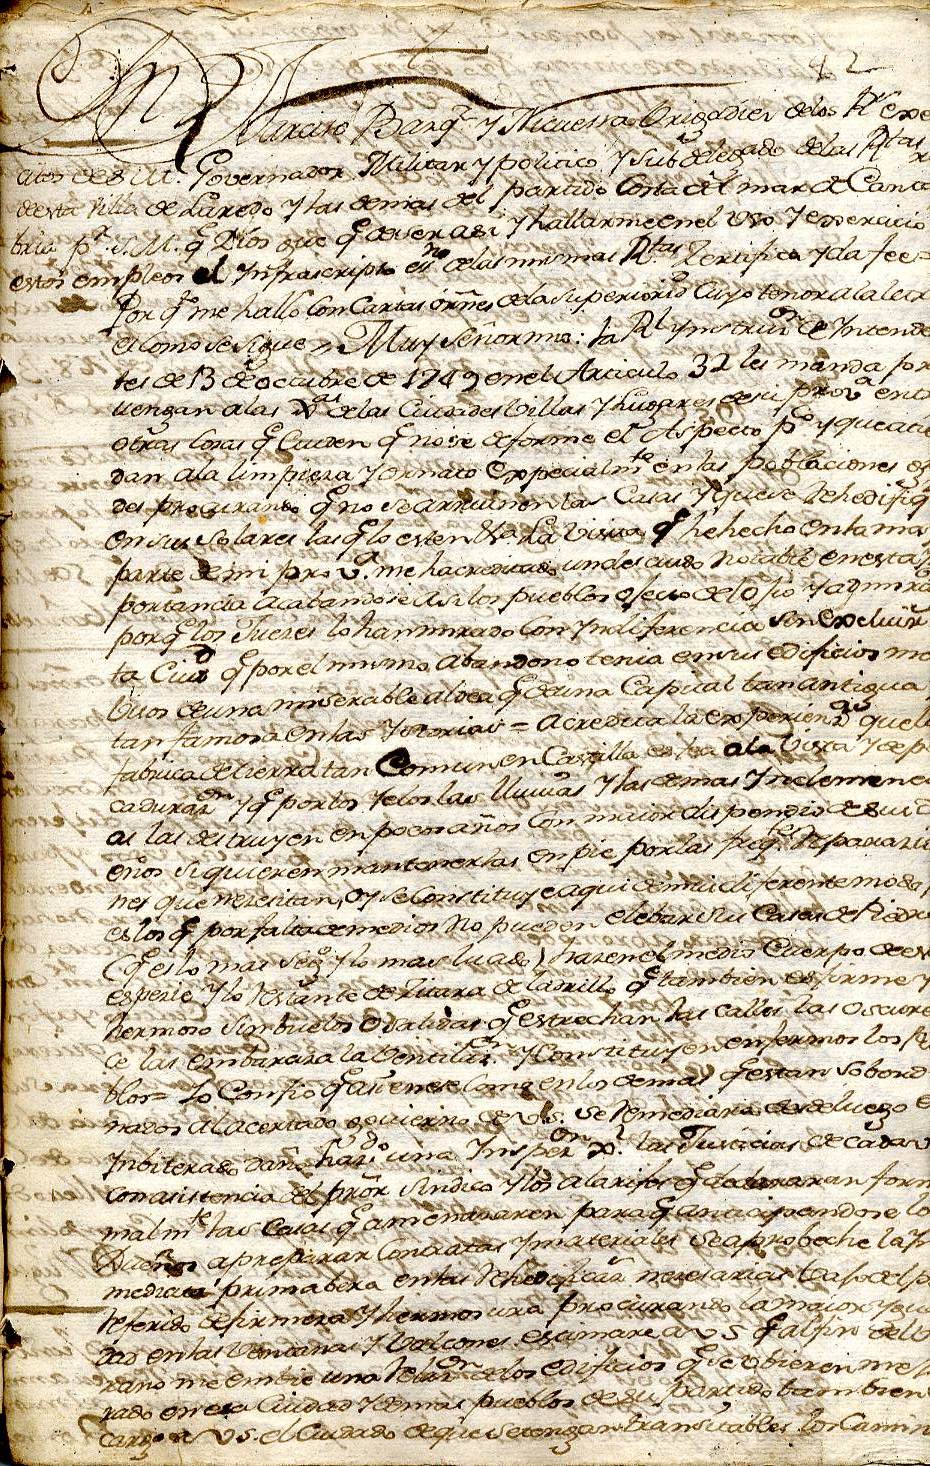 42
Dn Narciso Barq.l y Nicuessa Brigadier de los R.s exer
citos de S. M. Governador Militar y politico y Subdelegado de las R.tas
de esta Villa de Laredo y las demas del partido Costa del mar de Canta
bria p.r S. M. q Dios gue q de ser asi y hallarme en el uso y exercicio
estos empleos el Infrascripto es.no de las mismas R.tas Zertifica y da fee=
Por q.e me hallo Con Cartas orñes de la Superiorid Cuyo tenor a la letra
es como se sigue = Muy Señor mio: La R.l ynstruz.on de Intenden
tes de 13 de octubre de 1749 en el Articulo 32 les manda pre
vengan a las de las Ciudades Villas y Lugares de su prov.a entre
otras Cosas q Cuiden q no se deforme el Aspecto p.co y que atien
dan a la limpieza y ornato Expecialm.te en las poblaciones
des procurando q no se arruinen las Casas y que se Rehedifiq
en sus Solares las q lo esten la Visita q he hecho en la maior
parte de mi prov.a me ha acreditado un descuido Notable en esta
portancia acabandose asi los pueblos
por q los Juezes lo han mirado Con Yndiferencia sin excluir
ta Ciud.d q por el mismo Abandono tenia en sus edificios me
de una miserable aldea q de una Capital tan antigua
tan famosa en las Ystorias = acredita la experien.a que la
fabrica de tierra tan Comun en Castilla es fea a la Vista y de p
ca duraz.on y q por los Yelos las lluvias y las demas Ynclemen
as las destruyen en pocos años Con maior dispendio de sus d
eños si quieren mantenerlas en pie por las freq.tes Reparazio
nes que nezesitan, oy se Constituye aqui de mui diferente modo,
es los q por falta de medios No pueden elebar sus Casas de Piedra
(q es lo mas seg.o y lo mas luzido) hazen el medio Cuerpo de es
espezie y lo restante de Zitara de ladrillo q tambien es firme y
hermoso sin buelos o Salidas q estrechan las Calles las oscure
ce las embaraza la Ventilaz.on y Constituyen enfermos los Pue
blos= Yo Confio q asi en ese Como en los demas q estan subordi
nados al acertado govierno de V.S. se Remediara desde luego
Ynbiterado daño haz.do una Inspez.on p.r las Justicias de cada
con asistencia del pror Sindico y los alarifes q declararan for
malm.te las Casas q amenazaren para q anticipandose los
Dueños a preparar Contratas y materiales se aprobeche la Yn
mediata primabera en las Rehedificaz.s nezesarias bajo del p
referido de firmeza y hermosura procurando la maior ygual
dad en las Ventanas y Valcones estimare a VS q al fin del Ve
rano me embie una Relaz.on de los edificios q se ubieren
rado en esa Ciudad y demas pueblos de su partido tambien
cargo a VS. el Cuidado de que se tengan transitables los Camin